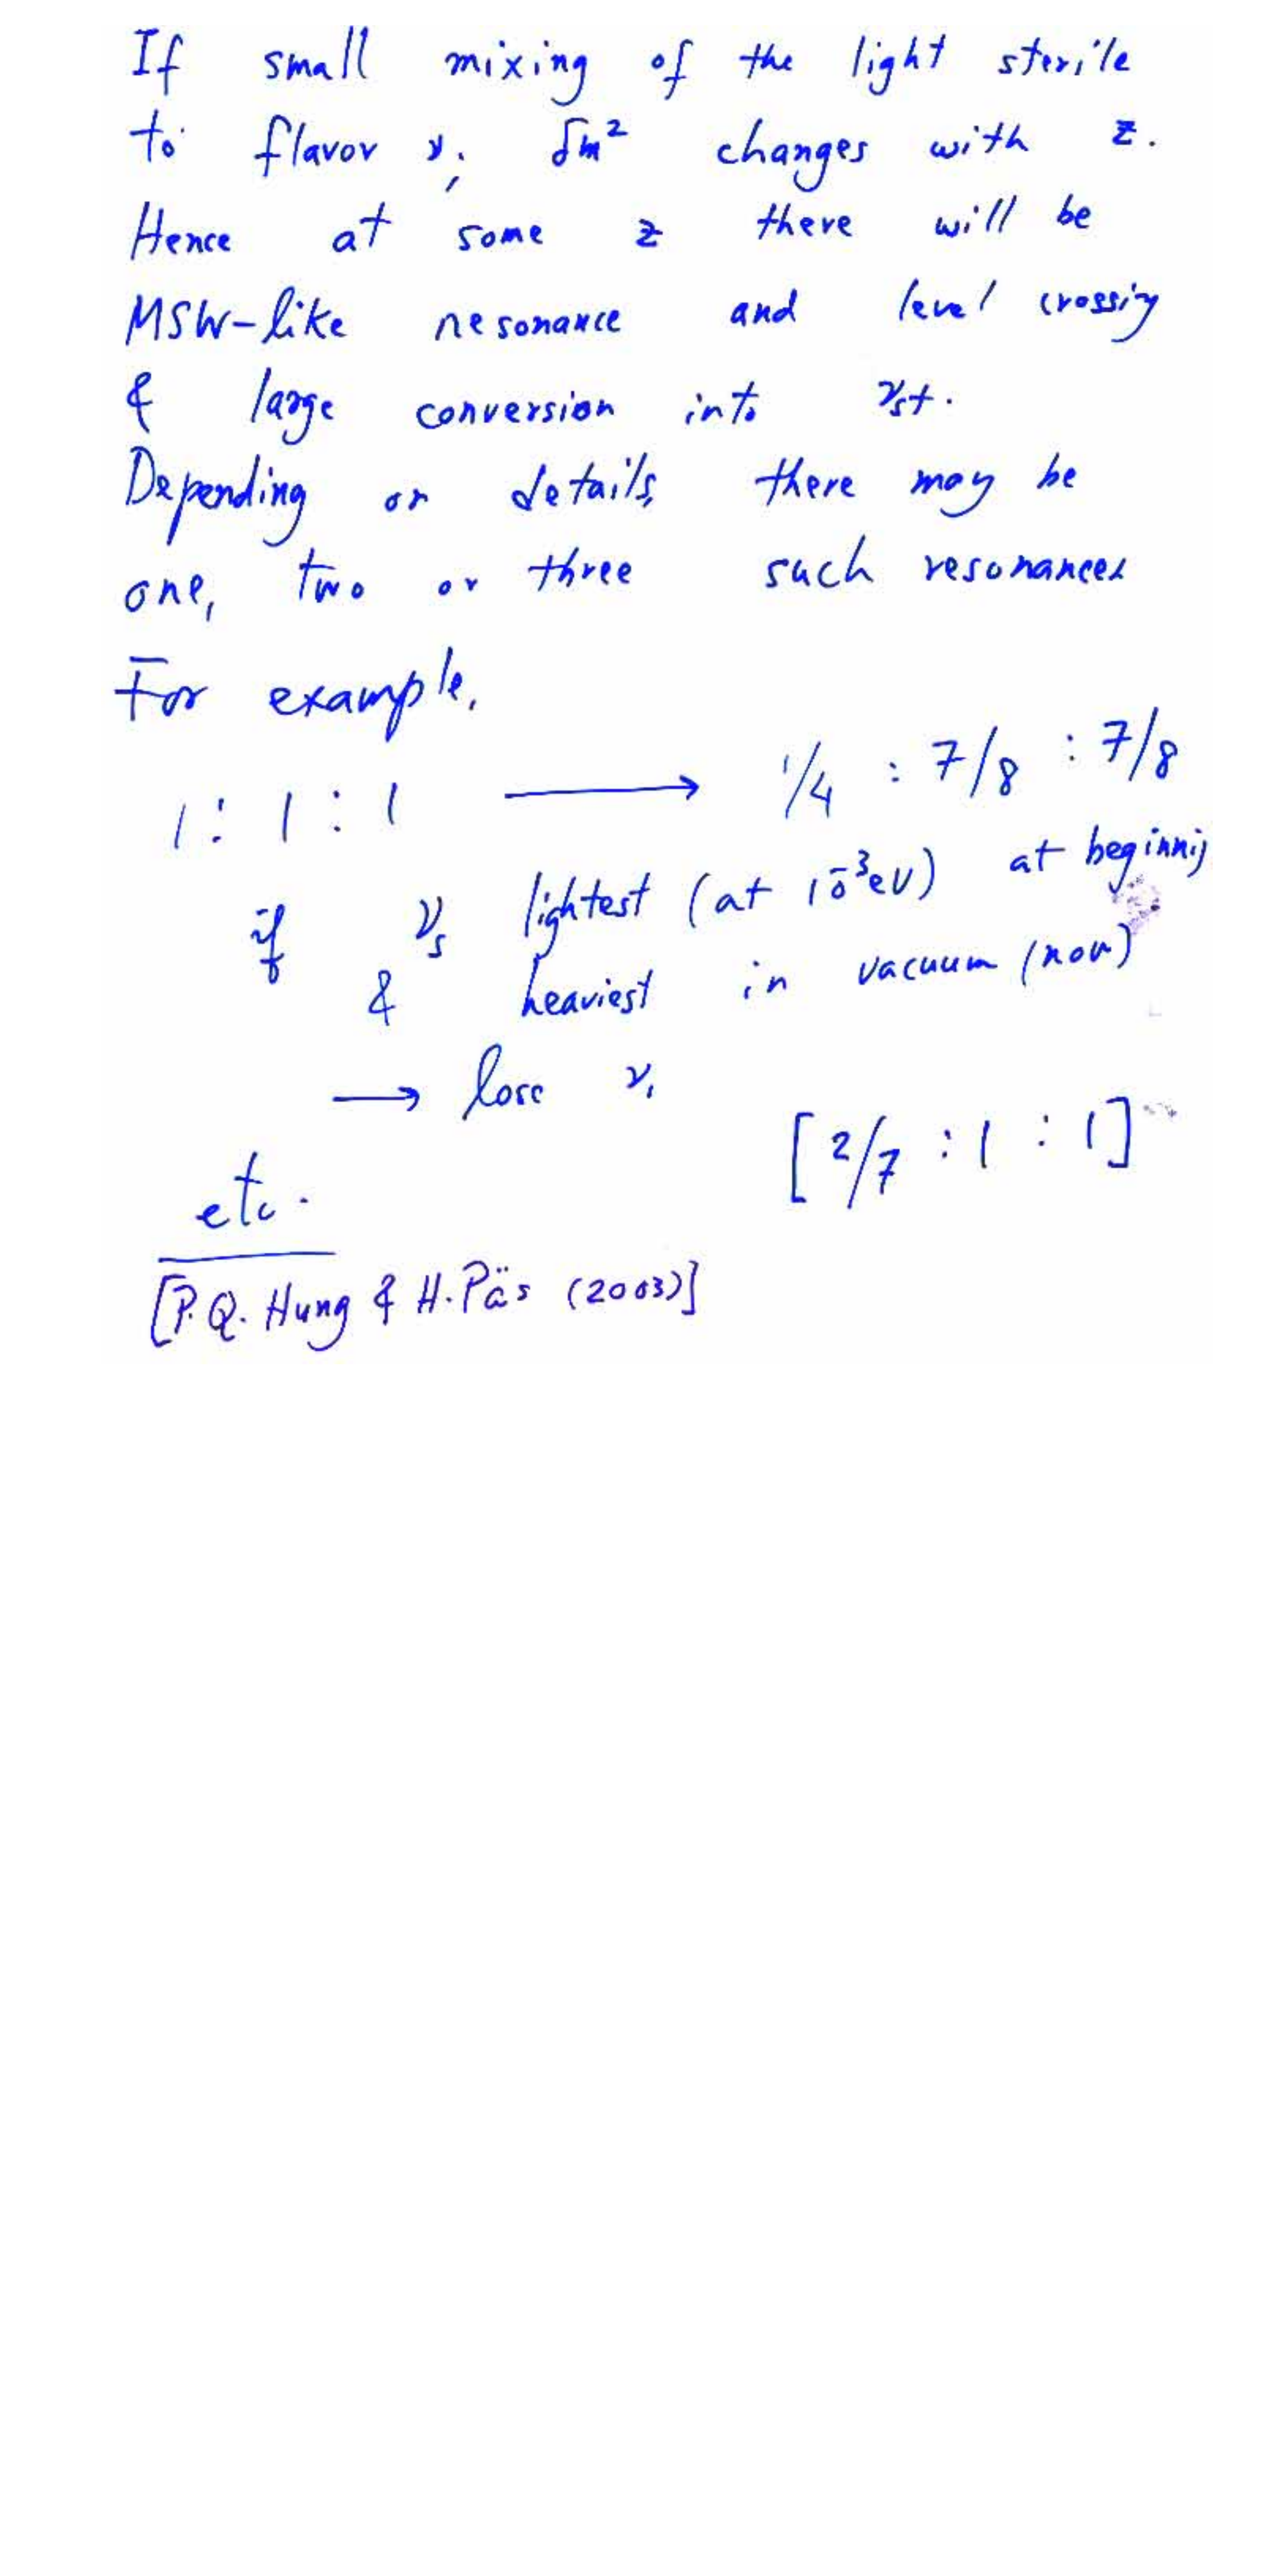 If small mixing of the light sterile
to flavor ν, δm² changes with z.
Hence at some z there will be
MSW-like resonance and level crossing
& large conversion into νst.
Depending on details, there may be
one, two or three such resonances
For example,
1 : 1 : 1 ⟶ 1/4 : 7/8 : 7/8
if νs lightest (at 10⁻³eV) at beginning
& heaviest in vacuum (now)
→ lose ν₁
[2/7 : 1 : 1]
etc.
[P.Q. Hung & H. Päs (2003)]